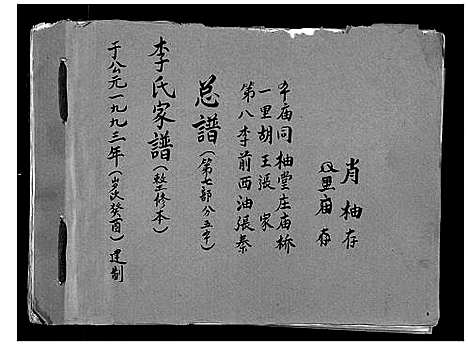 肖柚存
里庙存
午庙同柚堂庄庙桥
一里胡王張家
第八李前西油張秦
总譜(第七部分五字)
李氏家譜(整修本)
于公元一九九三年(岁次癸酉)建制